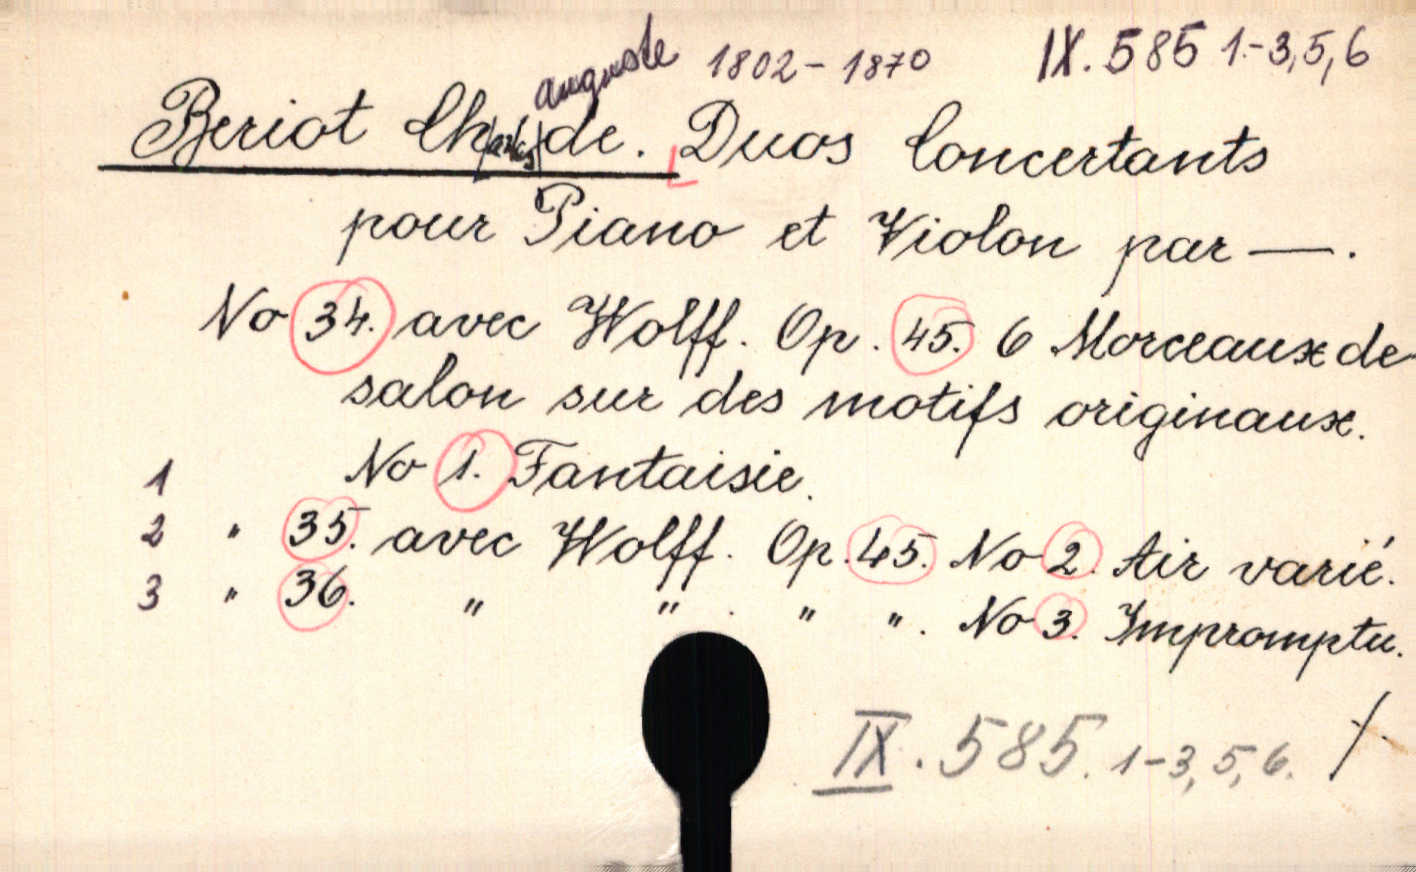 auguste 1802-1870 IX. 585 1-3,5,6
Beriot Ch[arles] de. Duos Concertants
pour Piano et Violon par —.
No 34. avec Wolff. Op. 45. 6 Morceaux de
salon sur des motifs originaux.
1 No 1. Fantaisie.
2 " 35. avec Wolff. Op. 45. No 2. Air varié.
3 " 36. " " . " ". No 3. Impromptu.
IX. 585. 1-3, 5, 6.